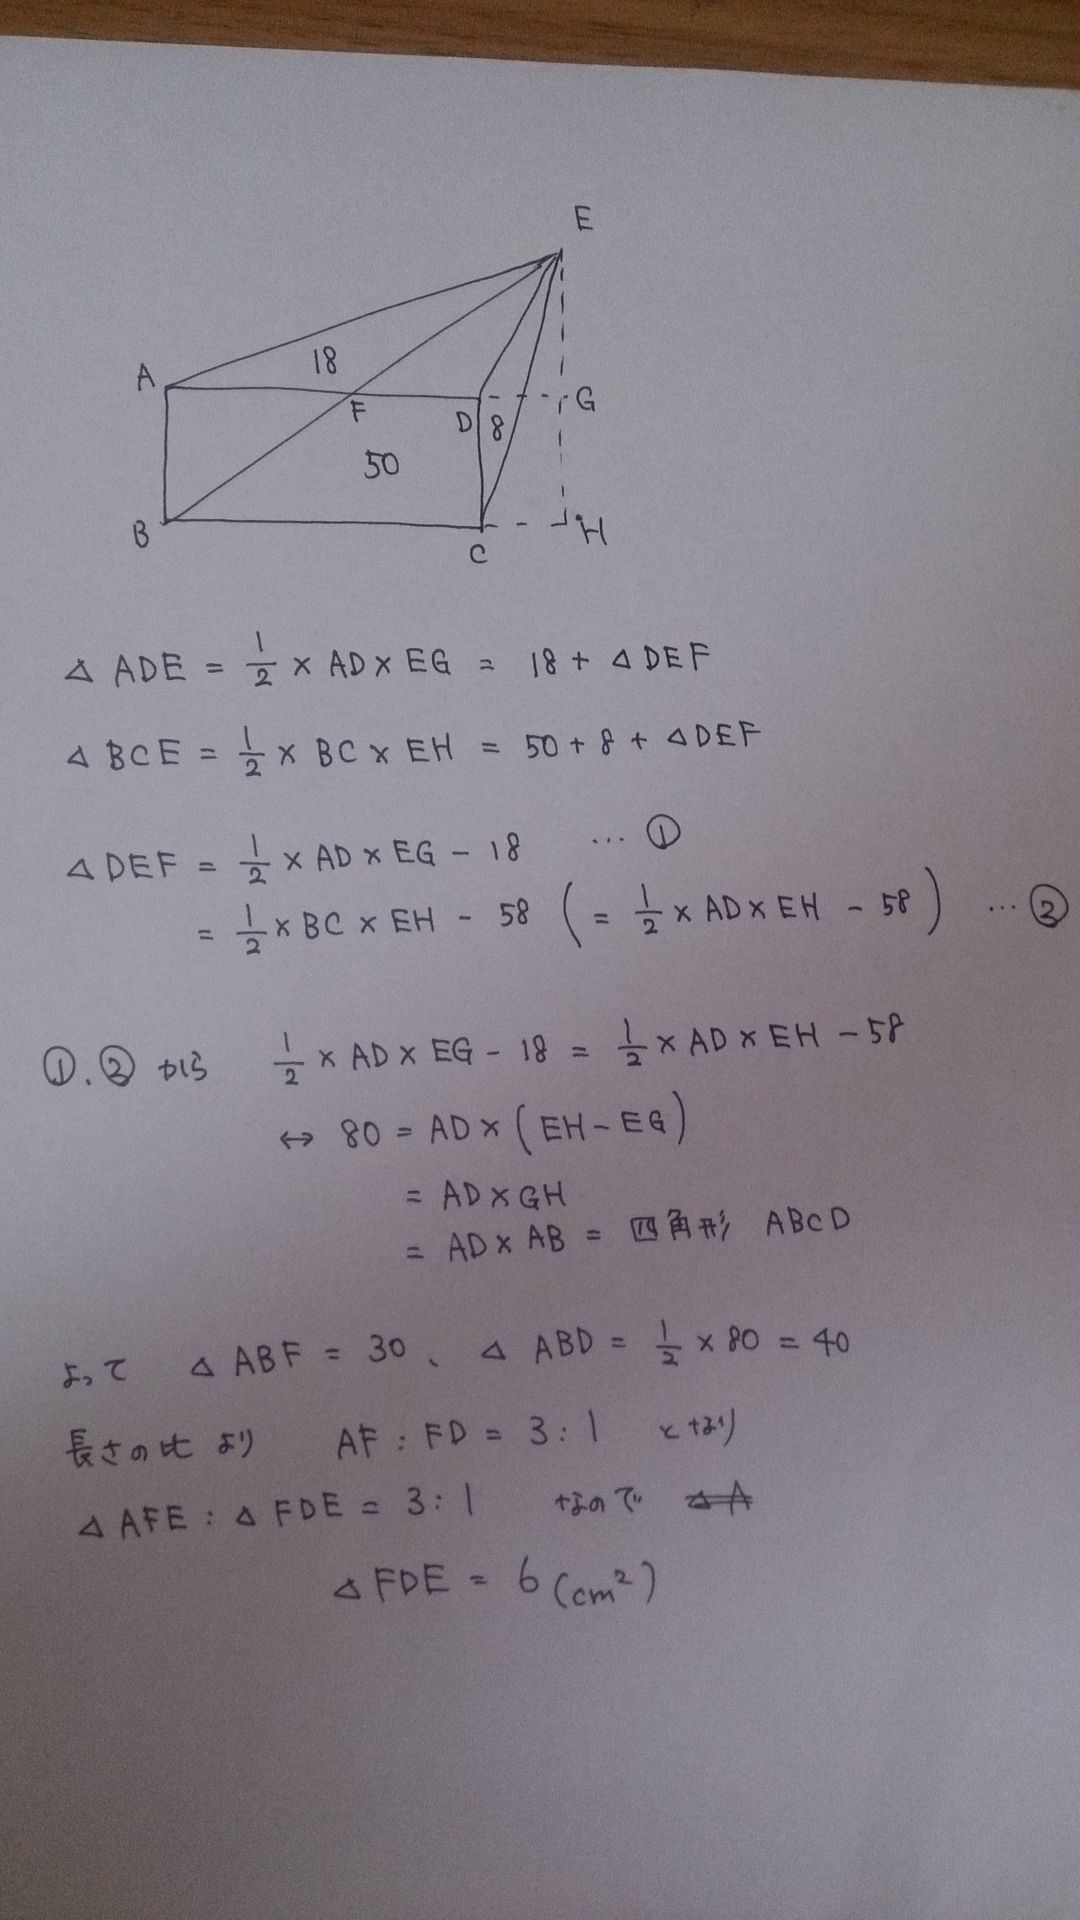 E
A
18
F
D
8
G
50
B
C
H
△ ADE = 1/2 × AD × EG = 18 + △DEF
△ BCE = 1/2 × BC × EH = 50 + 8 + △DEF
△ DEF = 1/2 × AD × EG - 18 … ①
= 1/2 × BC × EH - 58 ( = 1/2 × AD × EH - 58 ) … ②
①.② から 1/2 × AD × EG - 18 = 1/2 × AD × EH - 58
↔ 80 = AD × ( EH - EG )
= AD × GH
= AD × AB = 四角形 ABCD
よって △ ABF = 30、△ ABD = 1/2 × 80 = 40
長さの比より AF : FD = 3 : 1 となり
△ AFE : △ FDE = 3 : 1 なので △A
△ FDE = 6 (cm²)